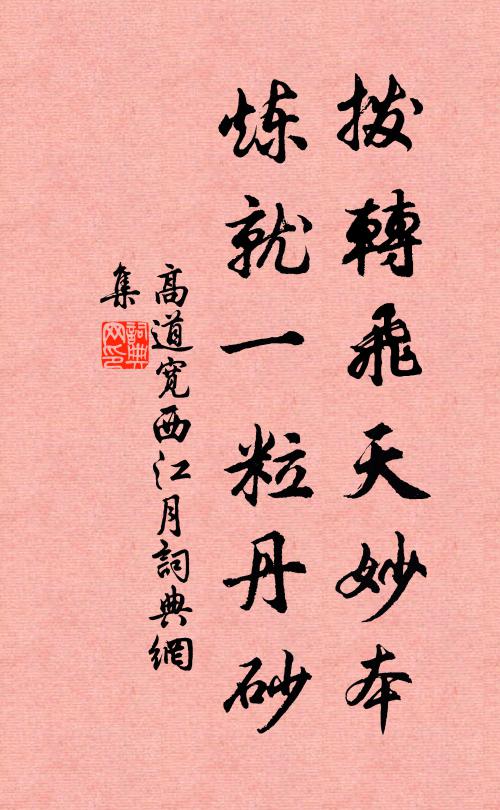 拨轉飛天妙本
炼就一粒丹砂
高道寬西江月詞典網
集
詞典网印